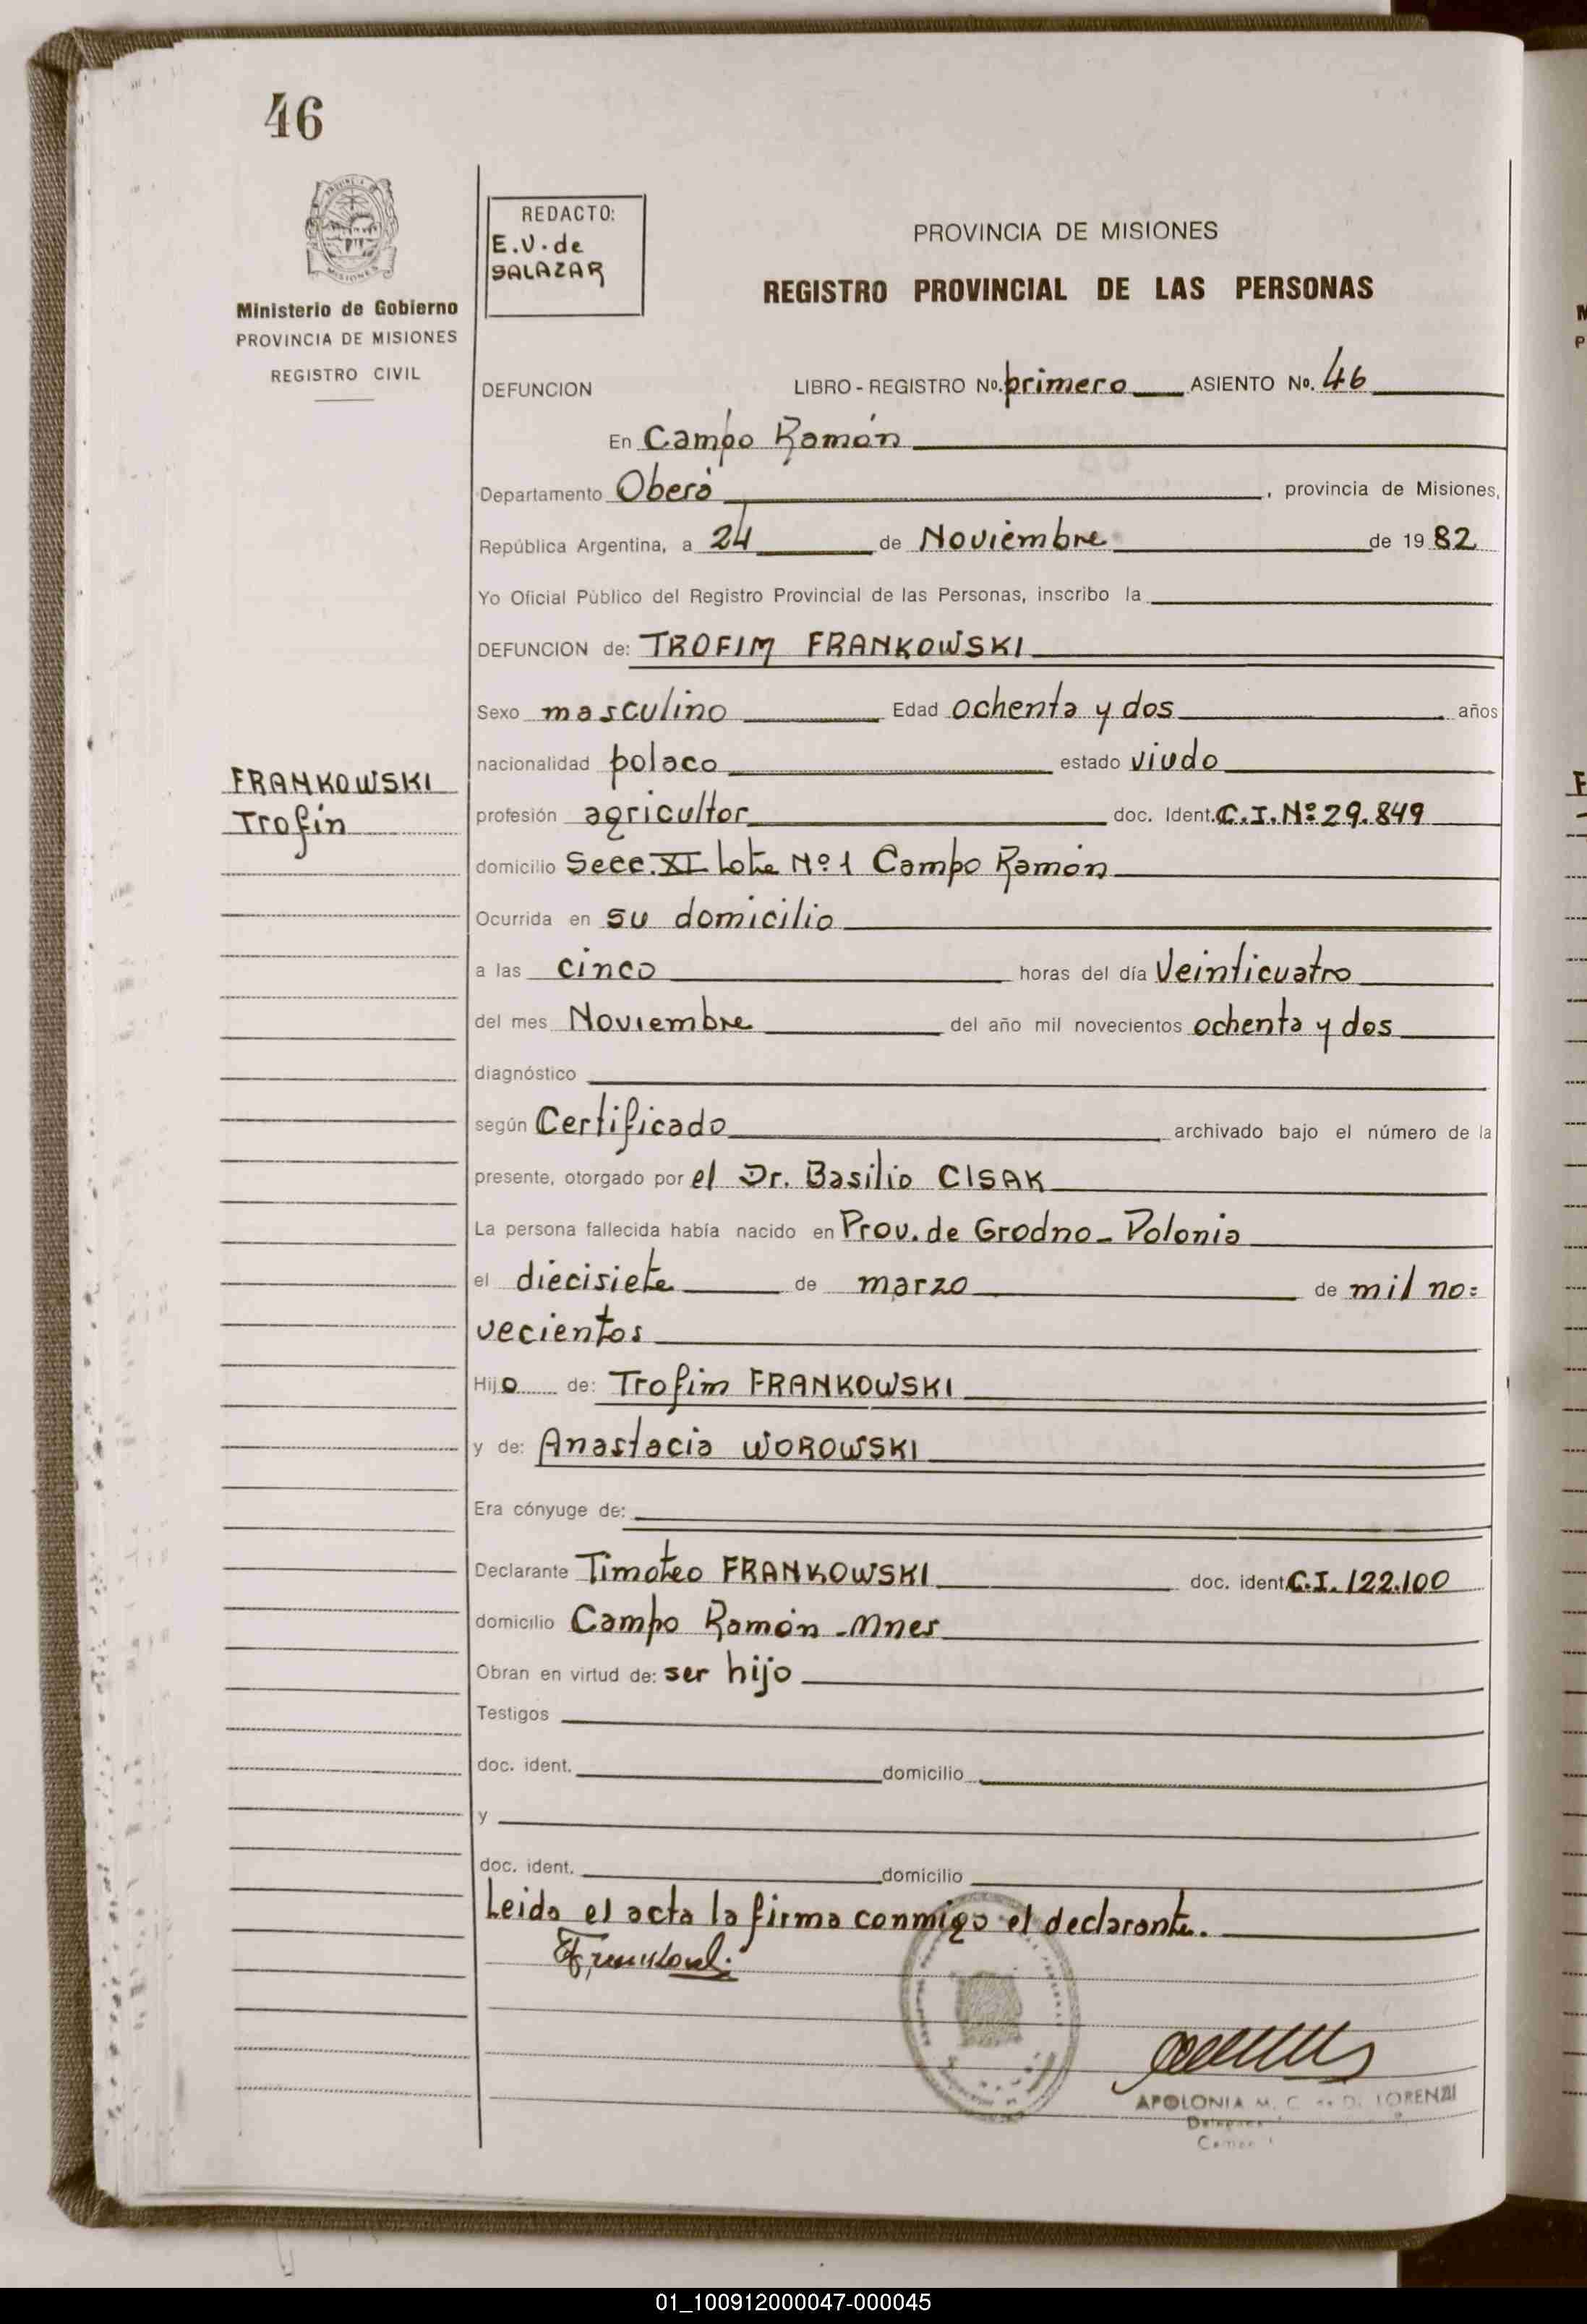 46
PROVINCIA DE
MISIONES
Ministerio de Gobierno
PROVINCIA DE MISIONES
REGISTRO CIVIL
REDACTO:
E.V. de
SALAZAR
PROVINCIA DE MISIONES
REGISTRO PROVINCIAL DE LAS PERSONAS
DEFUNCION LIBRO - REGISTRO No. primero ASIENTO No. 46
En Campo Ramón
Departamento Oberá, provincia de Misiones,
República Argentina, a 24 de Noviembre de 19 82
Yo Oficial Público del Registro Provincial de las Personas, inscribo la
DEFUNCION de: TROFIM FRANKOWSKI
Sexo masculino Edad ochenta y dos años
nacionalidad polaco estado viudo
FRANKOWSKI
Trofin
profesión agricultor doc. Ident. C.I. Nº 29.849
domicilio Secc. XI Lote Nº 1 Campo Ramón
Ocurrida en su domicilio
a las cinco horas del día Veinticuatro
del mes Noviembre del año mil novecientos ochenta y dos
diagnóstico
según Certificado archivado bajo el número de la
presente, otorgado por el Dr. Basilio CISAK
La persona fallecida había nacido en Prov. de Grodno - Polonia
el diecisiete de marzo de mil no=
vecientos
Hijo de: Trofim FRANKOWSKI
y de: Anastacia WOROWSKI
Era cónyuge de:
Declarante Timoteo FRANKOWSKI doc. ident. C.I. 122.100
domicilio Campo Ramón - Mnes
Obran en virtud de: ser hijo
Testigos
doc. ident. domicilio
y
doc. ident. domicilio
Leida el acta la firma conmigo el declarante.
APOLONIA M. C. DI LORENZI
01_100912000047-000045